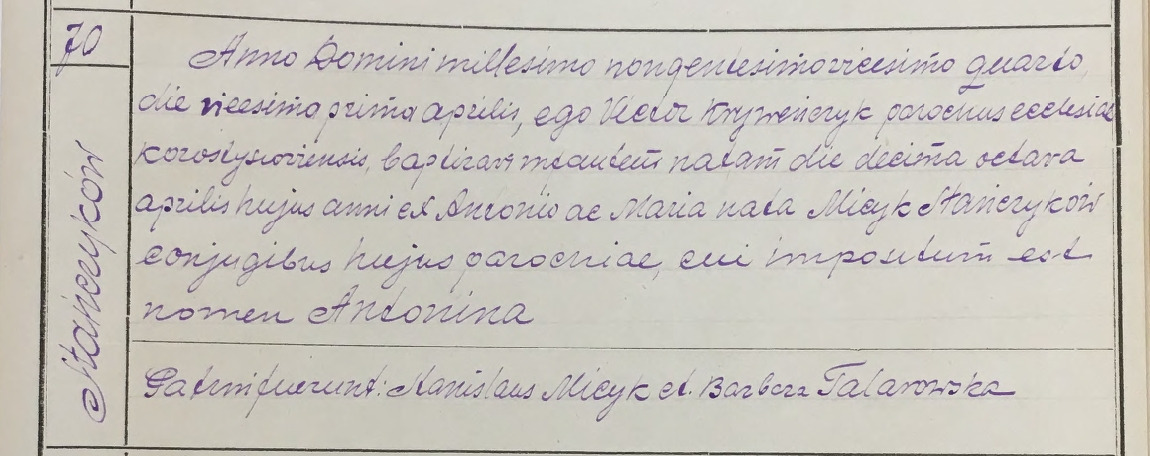 70
Stańczyków
Anno Domini millesimo nongentesimo vicesimo quarto,
die vicesima prima aprilis, ego Victor Kryweńczyk parochus ecclesiae
korostyszoviensis, baptizavi infantem natam die decima octava
aprilis hujus anni ex Antonio ac Maria nata Micyk Stańczyków
conjugibus hujus parochiae, cui impositum est
nomen Antonina
Patrini fuerunt: Stanislaus Micyk et. Barbara Talarowska